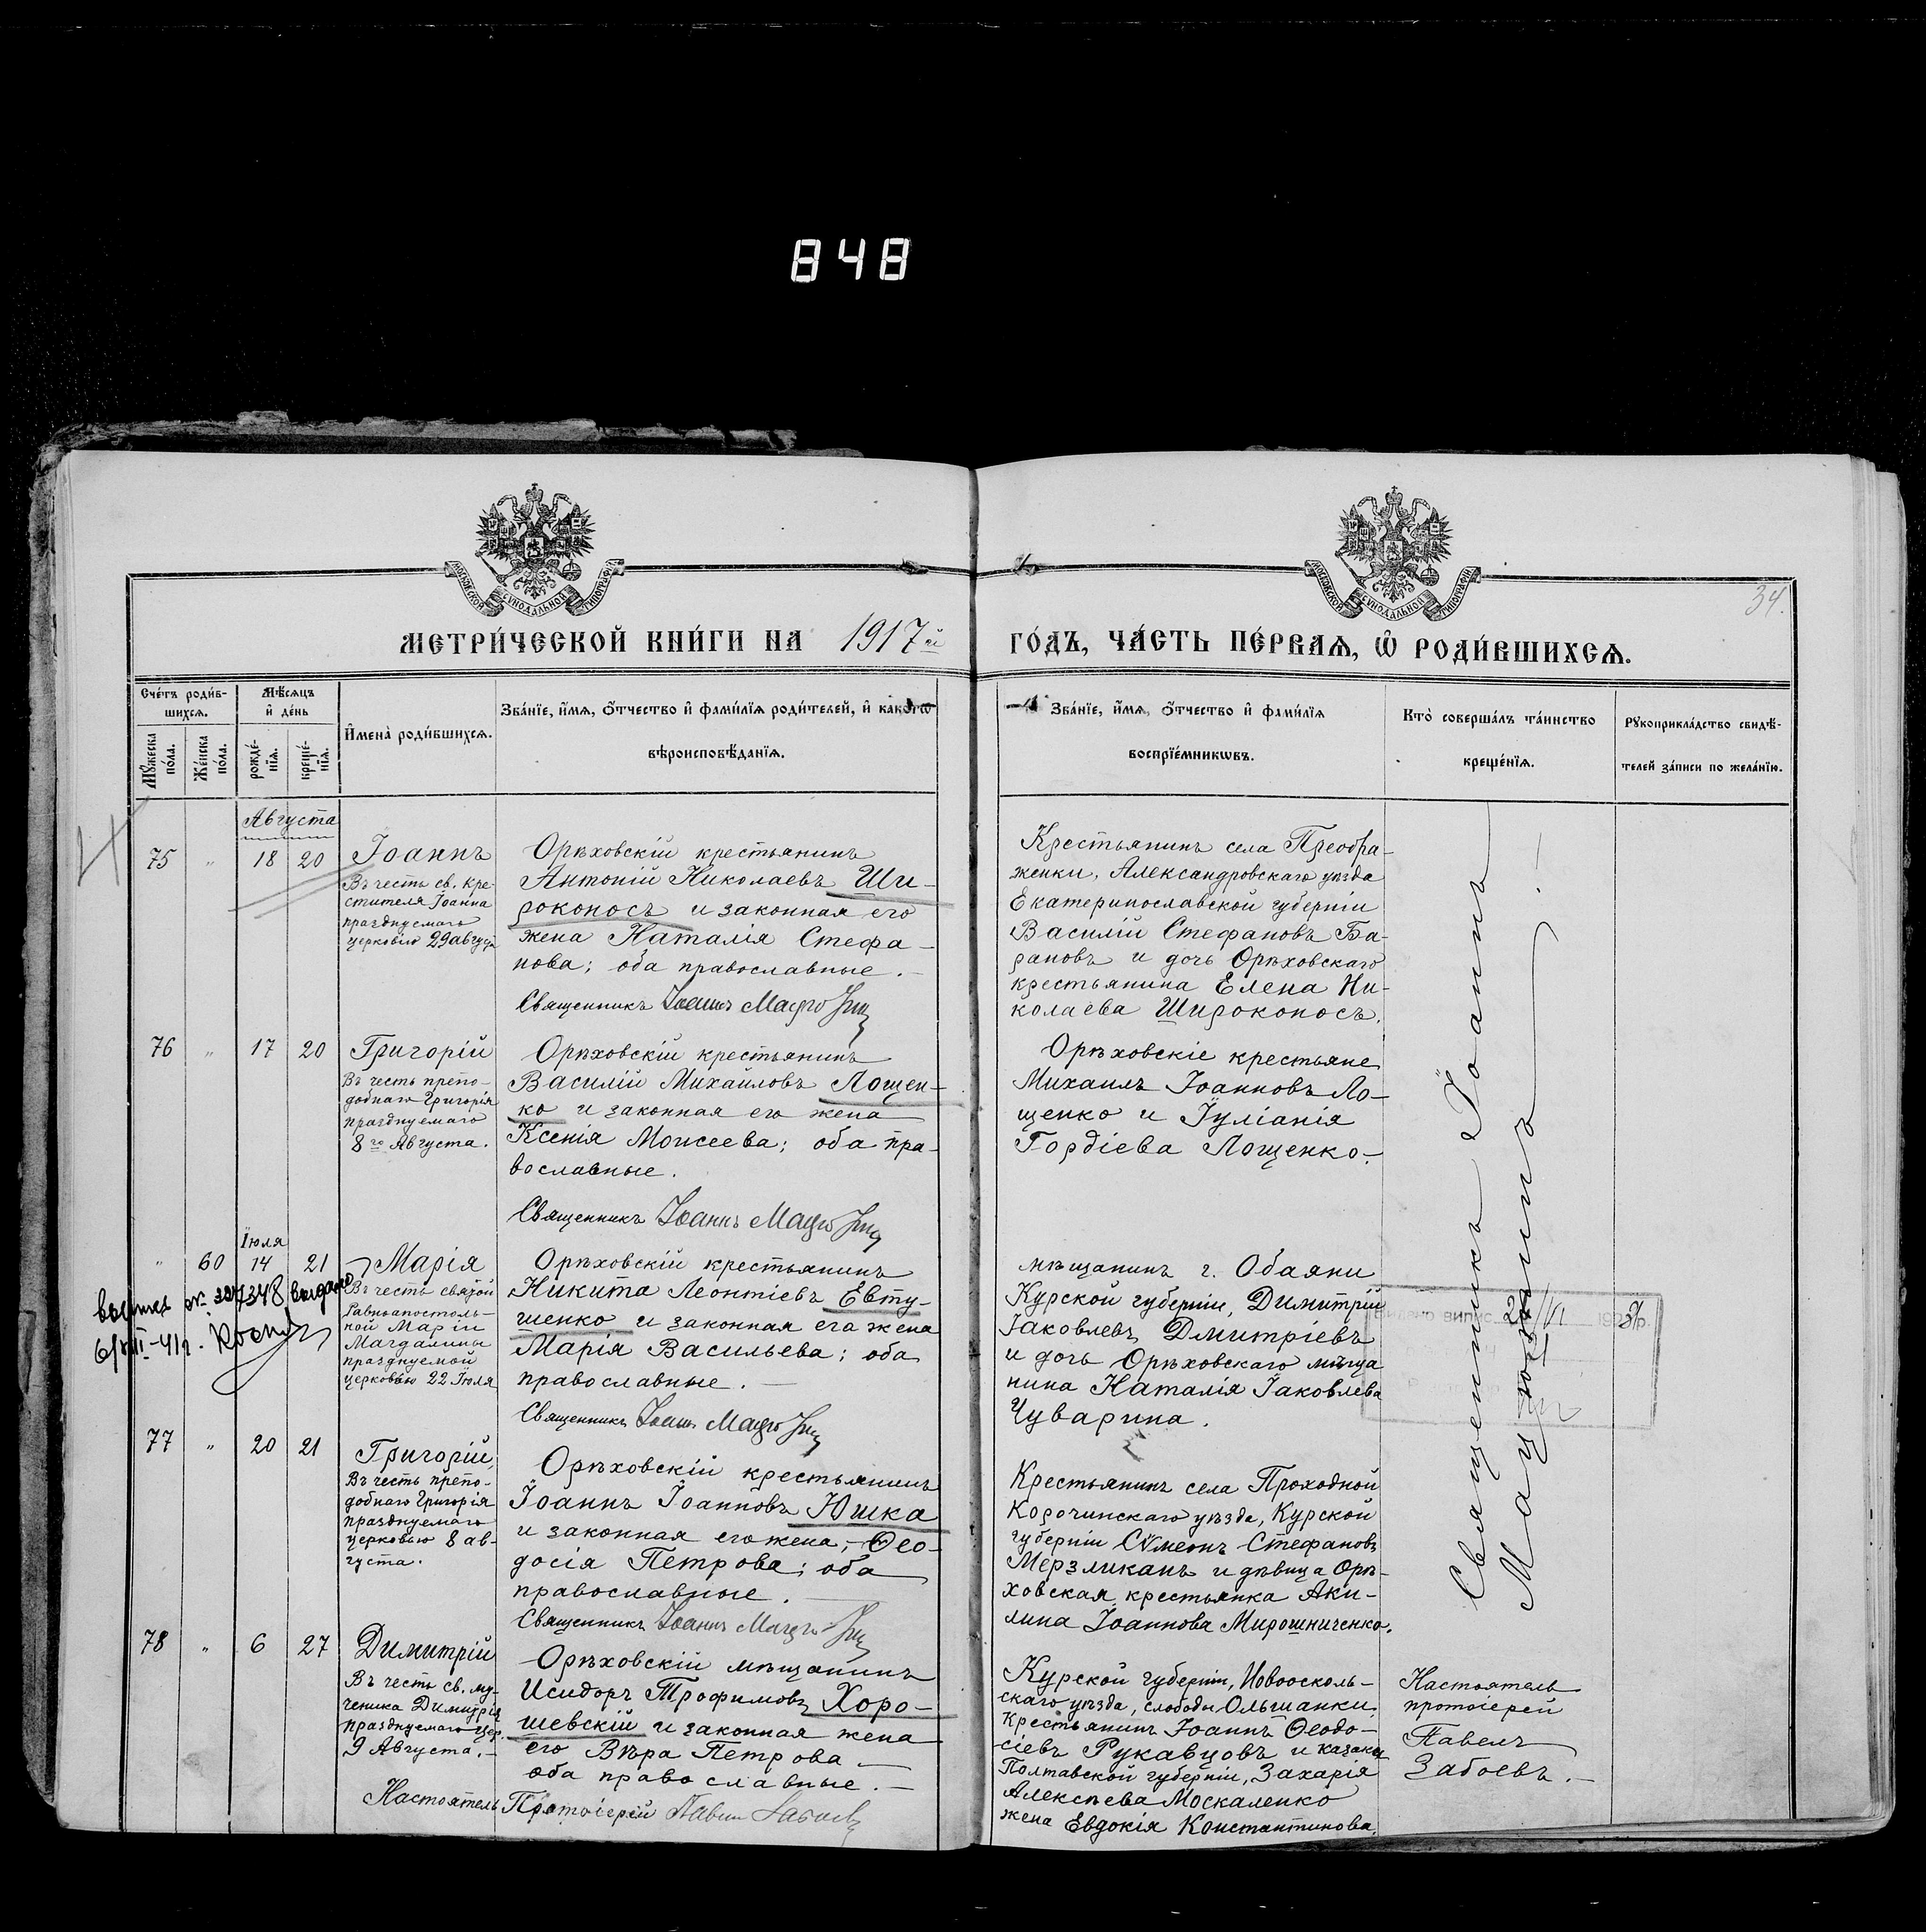 848
МОСКОВСКОЙ СУНОДАЛЬНОЙ ТИПОГРАФІИ
МОСКОВСКОЙ СУНОДАЛЬНОЙ ТИПОГРАФІИ
34.
МЕТРИ́ЧЕСКОЙ КНИ́ГИ НА 1917й
ГО́ДЪ, ЧА́СТЬ ПЕ́РВАѦ, Ѡ҆ РОДИ́ВШИХСѦ.
Сче́тъ роди́в-
шихсѧ.
Мѣ́сѧцъ
и҆ де́нь
Мꙋ́жеска
по́ла.
Же́нска
по́ла.
рожде́-
нїѧ.
креще́-
нїѧ.
И҆мена̀ роди́вшихсѧ.
Зва́нїе, и҆́мѧ, ѻ҆́тчество и҆ фами́лїѧ роди́телей, и҆ како́гѡ
вѣроисповѣ́данїѧ.
Зва́нїе, и҆́мѧ, ѻ҆́тчество и҆ фами́лїѧ
воспрїе́мникѡвъ.
Кто̀ соверша́лъ та́инство
креще́нїѧ.
Рꙋкоприкла́дство свидѣ́-
телей за́писи по жела́нїю.
Августа
75 " 18 20
Іоаннъ
Въ честь св. кре-
стителя Іоанна
празднуемаго
церковію 29 августа
Орѣховскій крестьянинъ
Антоній Николаевъ Ши-
роконосъ и законная его
жена Наталія Стефа-
нова; оба православные.
Священникъ Іоаннъ
Крестьянинъ села Преобра-
женки, Александровскаго уѣзда
Екатеринославской губерніи
Василій Стефановъ Ба-
рановъ и дочь Орѣховскаго
крестьянина Елена Ни-
колаева Широконосъ.
76 " 17 20
Григорій
Въ честь препо-
добнаго Григорія
празднуемаго
8го Августа.
Орѣховскій крестьянинъ
Василій Михайловъ Лощен-
ко и законная его жена
Ксенія Моисеева; оба пра-
вославные.
Священникъ Іоаннъ
Орѣховскіе крестьяне
Михаилъ Іоанновъ Ло-
щенко и Іуліанія
Гордіева Лощенко.
Іюля
" 60 14 21
Марія
Въ честь святой
Равноапостоль-
ной Маріи
Магдалины
празднуемой
церковью 22 Іюля
348 выдано
6/VIII-41г.
Орѣховскій крестьянинъ
Никита Леонтіевъ Евту-
шенко и законная его жена
Марія Васильева; оба
православные.
Священникъ Іоаннъ
мѣщанинъ г. Обаяни
Курской губерніи, Димитрій
Іаковлевъ Дмитріевъ
и дочь Орѣховскаго мѣща
нина Наталія Іаковлева
Чуварина.
випис
77 " 20 21
Григорій
Въ честь препо-
добнаго Григорія
празднуемаго
церковью 8 ав-
густа.
Орѣховскій крестьянинъ
Іоаннъ Іоанновъ Юшка
и законная его жена, Ѳео-
досія Петрова; оба
православные.
Священникъ Іоаннъ
Крестьянинъ села Проходной
Корочинскаго уѣзда, Курской
губерніи Сѵмеонъ Стефановъ
Мерзликанъ и дѣвица Орѣ-
ховская крестьянка Аки-
лина Іоаннова Мирошниченко.
Священникъ Іоаннъ
78 " 6 27
Димитрій
Въ честь св. му-
ченика Димитрія
празднуемаго цер.
9 Августа.
Орѣховскій мѣщанинъ
Исидоръ Трофимовъ Хоро-
шевскій и законная жена
его Вѣра Петрова
оба православные.
Настоятель Протоіерей Павелъ Забоевъ
Курской губерніи, Новоосколь-
скаго уѣзда, слободы Ольшанки
Крестьянинъ Іоаннъ Ѳеодо-
сіевъ Рукавцовъ и казака
Полтавской губерніи, Захарія
Алексѣева Москаленко
жена Евдокія Константинова.
Настоятель
протоіерей
Павелъ
Забоевъ.